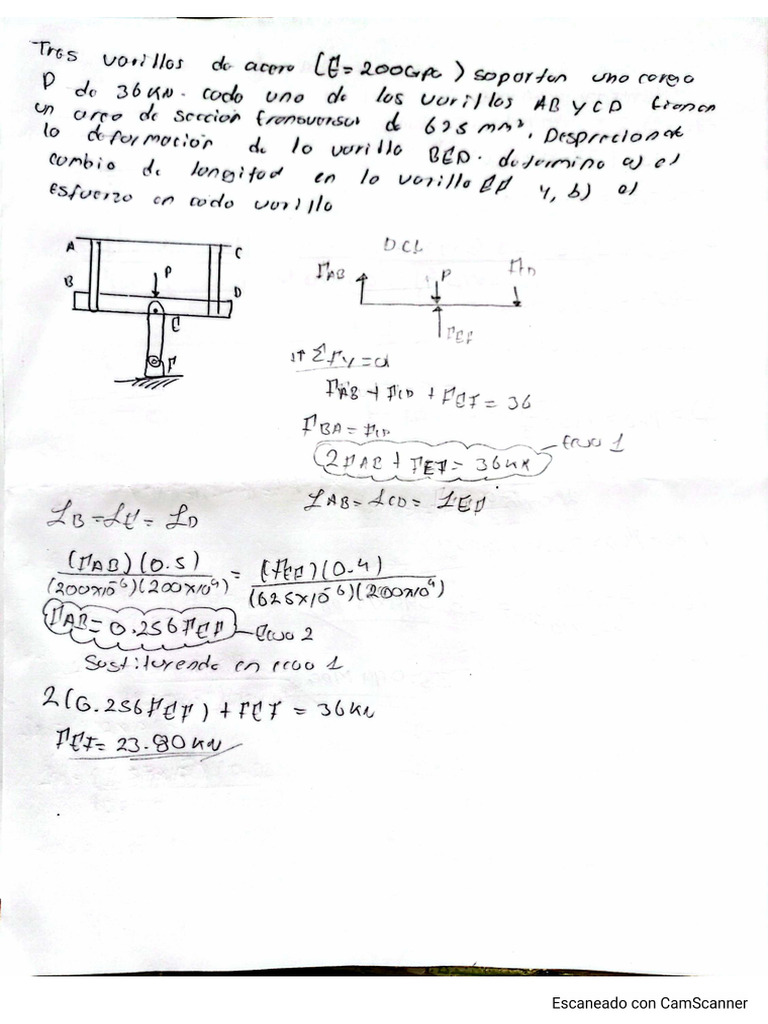 Tres varillas de acero (E=200Gpa) soportan una carga
P de 36KN. cada una de las varillas AB y CD tienen
un area de seccion transversal de 625 mm², Despreciando
la deformación de la varilla BED. determine a) el
cambio de longitud en la varilla EF y, b) el
esfuerzo en cada varilla
A
C
B
P
D
E
F
DCL
FAB
P
FEF
↑↑ΣFy=0
FAB + FCD + FEF = 36
FBA = FCD
2FAB + FEF = 36KN
Ecua 1
LAB = LCD = LEF
LB = LE = LD
(FAB)(0.5) = (FEF)(0.4)
(200x10⁻⁶)(200x10⁹) (625x10⁻⁶)(200x10⁹)
FAB = 0.256FEF
Ecua 2
Sustituyendo en ecua 1
2(0.256FEF) + FEF = 36KN
FEF = 23.80KN
Escaneado con CamScanner